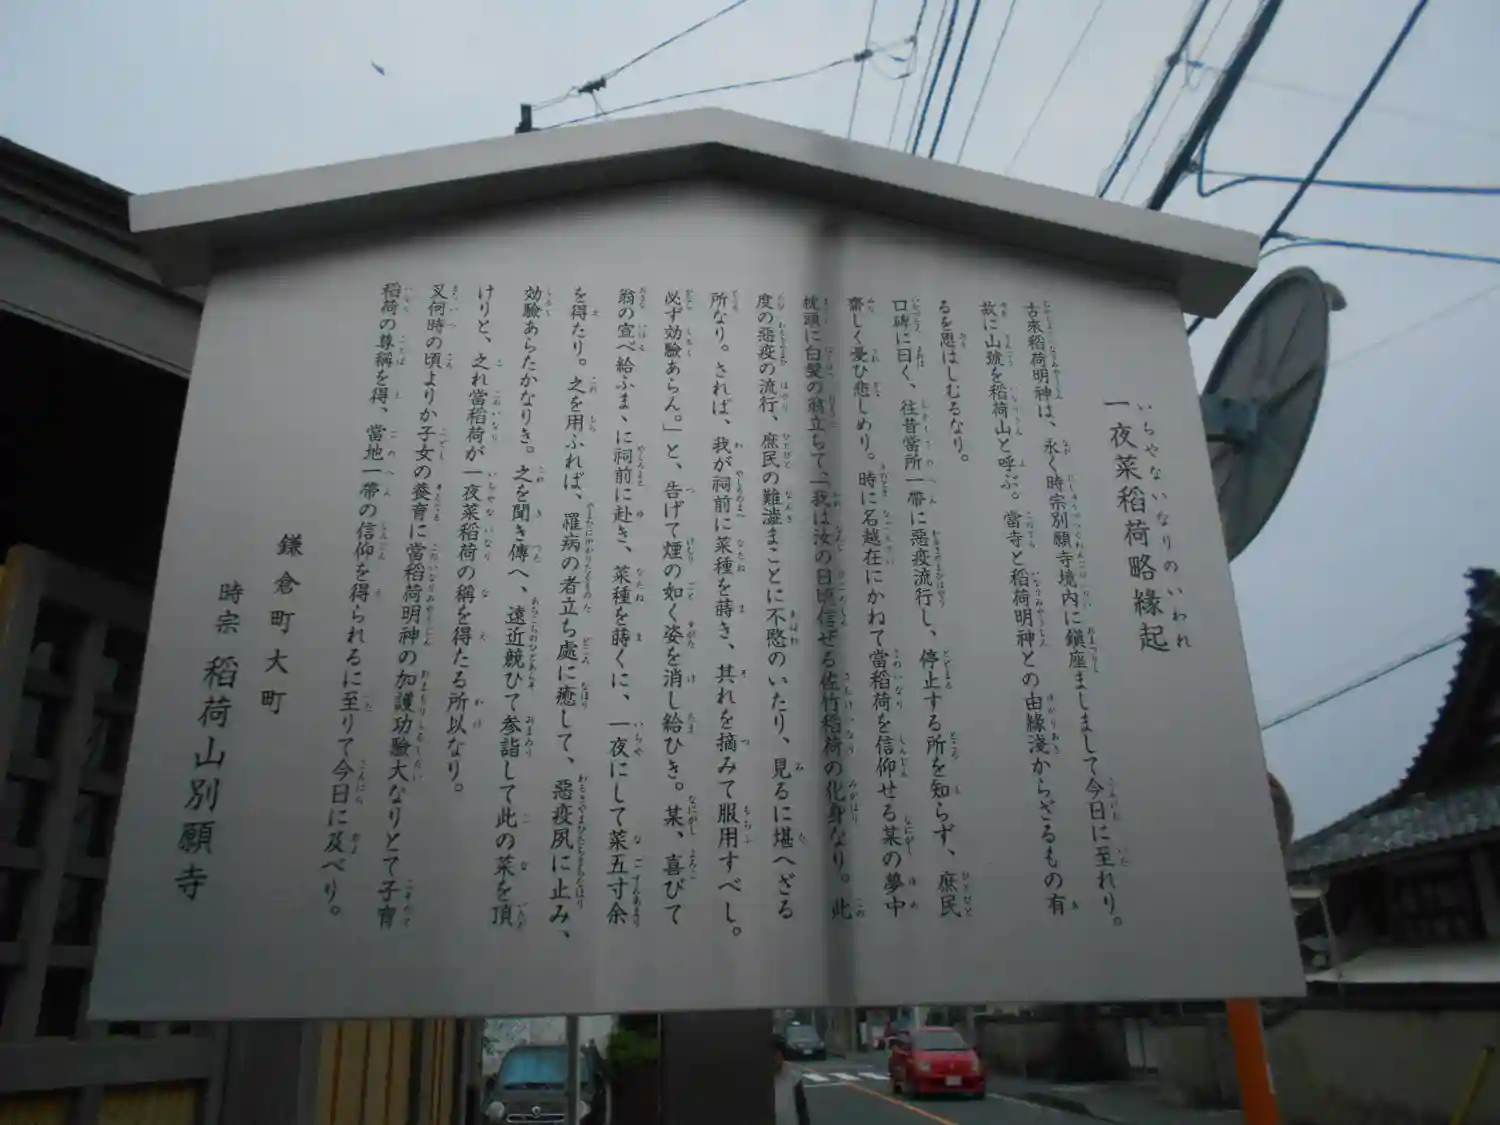 一夜菜稲荷略縁起
古來稲荷明神は、永く時宗別願寺境内に鎮座ましまして今日に至れり。
故に山號を稲荷山と呼ぶ。當寺と稲荷明神との由縁淺からざるもの有
るを思はしむるなり。
口碑に曰く、往昔當所一帶に惡疫流行し、停止する所を知らず、庶民
齋しく憂ひ悲しめり。時に名越在にかねて當稲荷を信仰せる某の夢中
枕頭に白髪の翁立ちて、「我は汝の日頃信ぜる佐竹稲荷の化身なり。此
度の惡疫の流行、庶民の難澁まことに不愍のいたり、見るに堪へざる
所なり。されば、我が祠前に菜種を蒔き、其れを摘みて服用すべし。
必ず効驗あらん。」と、告げて煙の如く姿を消し給ひき。某、喜びて
翁の宣べ給ふま、に祠前に赴き、菜種を蒔くに、一夜にして菜五寸余
を得たり。之を用ふれば、羅病の者立ち處に癒して、惡疫夙に止み、
効驗あらたかなりき。之を聞き傳へ、遠近競ひて参詣して此の菜を頂
けりと、之れ當稲荷が一夜菜稲荷の稱を得たる所以なり。
又何時の頃よりか子女の養育に當稲荷明神の加護功驗大なりとて子育
稲荷の尊稱を得、當地一帶の信仰を得られるに至りて今日に及べり。
鎌倉町大町
時宗 稲荷山別願寺